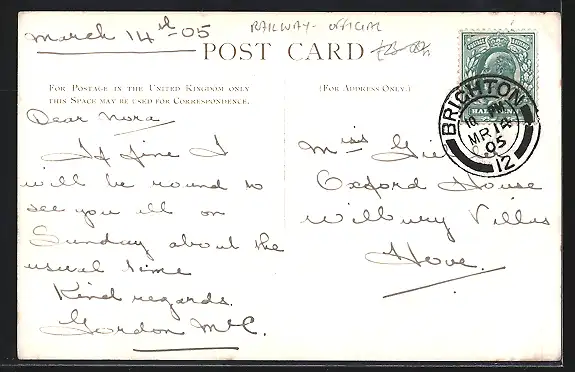 March 14th-05
RAILWAY- OFFICIAL
POST CARD
FOR POSTAGE IN THE UNITED KINGDOM ONLY
THIS SPACE MAY BE USED FOR CORRESPONDENCE.
(FOR ADDRESS ONLY.)
Dear Nora
If fine I
will be round to
see you all on
Sunday about the
usual time
Kind regards.
Gordon McC.
Miss
Oxford House
Wilbury Villas
Hove.
BRIGHTON
PM
MR 14
05
12